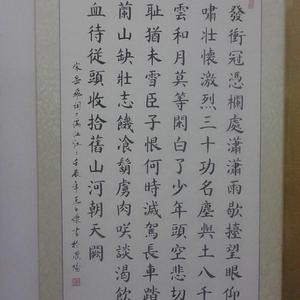 發衝冠憑欄處瀟瀟雨歇擡望眼仰
嘯壯懷激烈三十功名塵與土八千
雲和月莫等閑白了少年頭空悲切
耻猶未雪臣子恨何時滅駕長車踏
蘭山缺壯志饑飡鬍虜肉咲談渴飲
血待從頭收拾舊山河朝天闕
宋岳飛詞滿江紅壬辰年書於